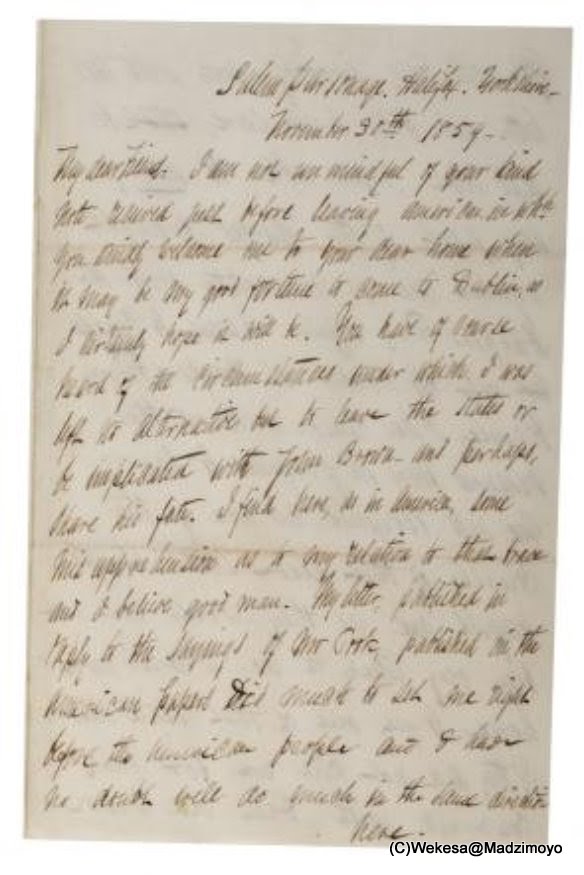 Salem parsonage. Halifax. Yorkshire-
November 30th 1859-
My dear Friend. I am not unmindful of your kind
note received just before leaving American in wh
you kindly welcome me to your dear home when
it may be my good fortune to come to Dublin, as
I certainly hope it will be. You have of course
heard of the circumstances under which I was
left no alternative but to leave the States or
be implicated with John Brown- and perhaps,
share his fate. I find here, as in America, some
misapprehension as to my relation to that brave
and I believe good man. My letter, published in
reply to the sayings of Mr Cook, published in the
American papers Did much to set me right
before the American people and I have
no doubt will do much in the same direction
here.
(C)Wekesa@Madzimoyo